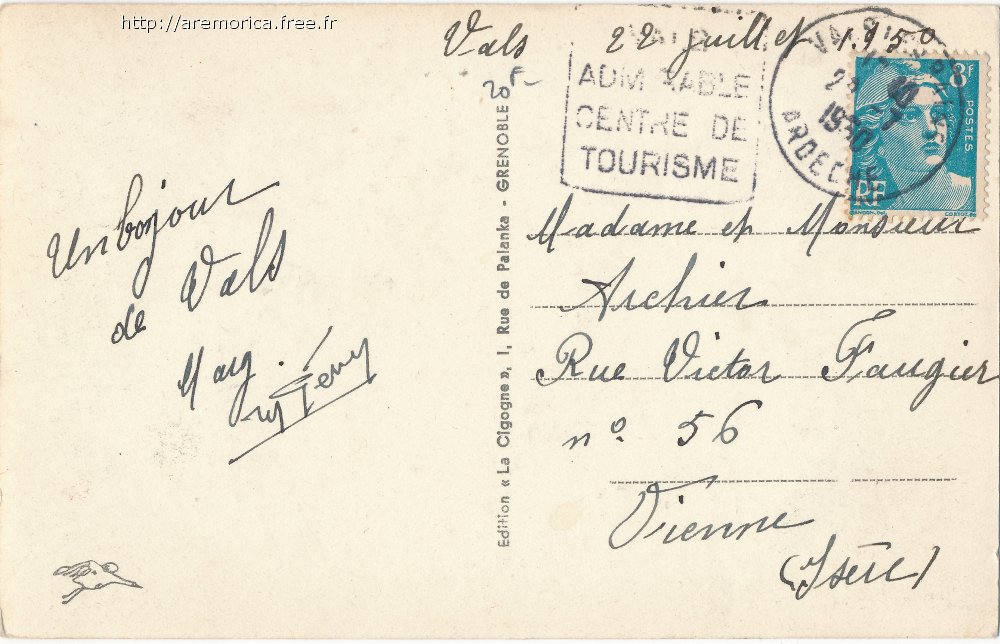 http://aremorica.free.fr
Vals 22 juillet 1950
20 F
ADMIRABLE
CENTRE DE
TOURISME
ARDECHE
1950
8F
POSTES
RF
Un bonjour
de Vals
Mary
Edition « La Cigogne », 1, Rue de Palanka - GRENOBLE
Madame et Monsieur
Archier
Rue Victor Faugier
n° 56
Vienne
(Isère)